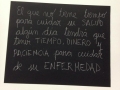 El que no tiene tiempo
para cuidar su SALUD
algún día tendrá que
tener TIEMPO, DINERO y
PACIENCIA para cuidar
de su ENFERMEDAD